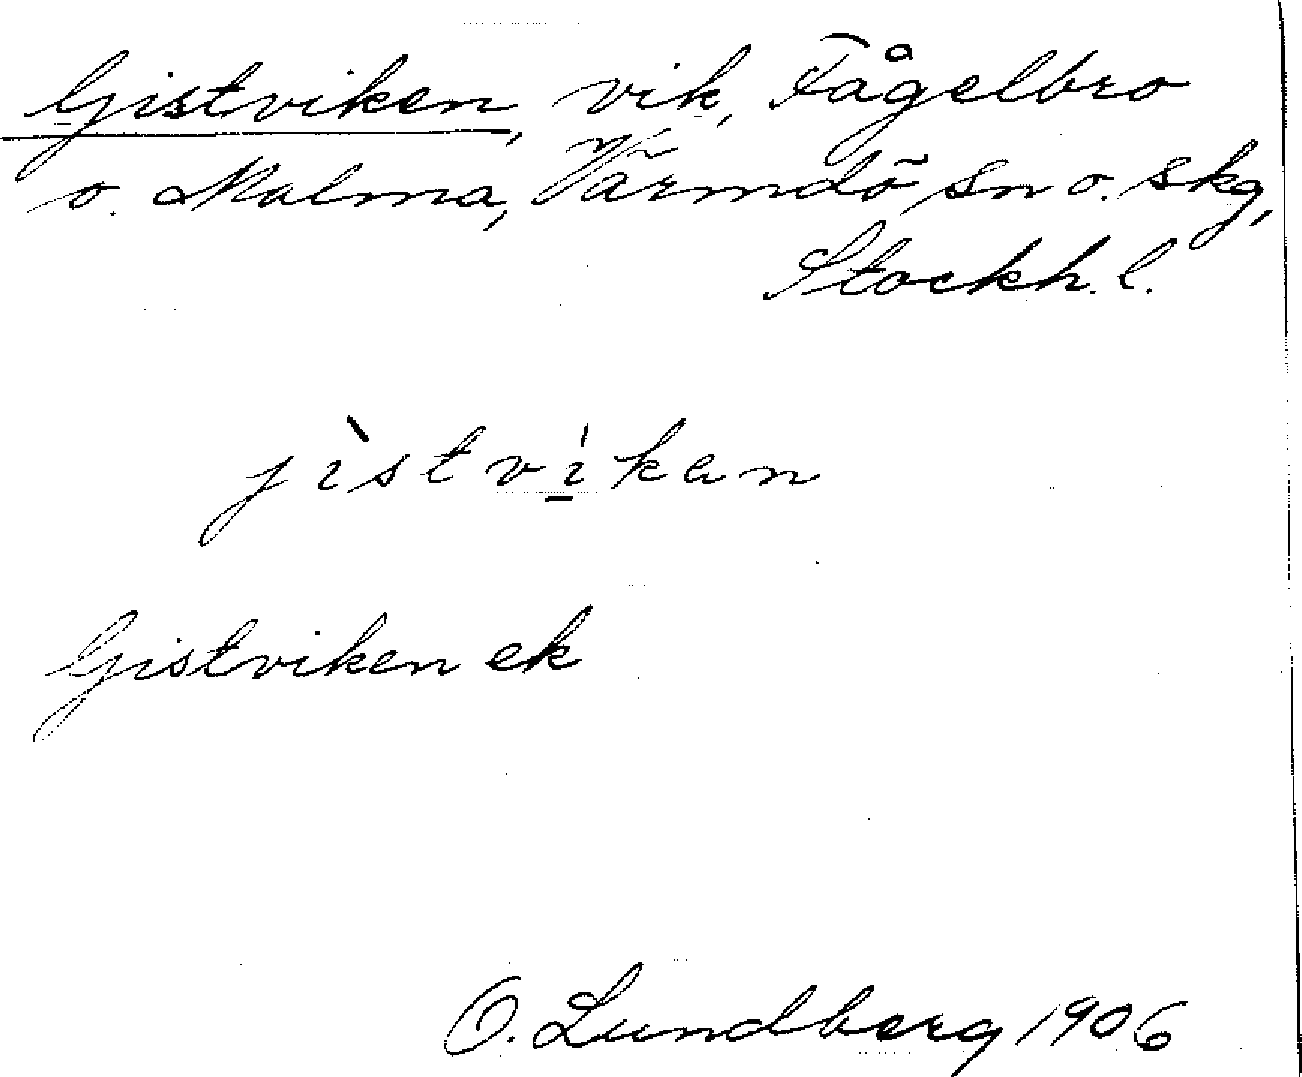 Gistviken, vik, Fågelbro
o. Malma, Värmdö sn o. skg,
Stockh. l.
jìství̲kan
Gistviken ek
O. Lundberg 1906